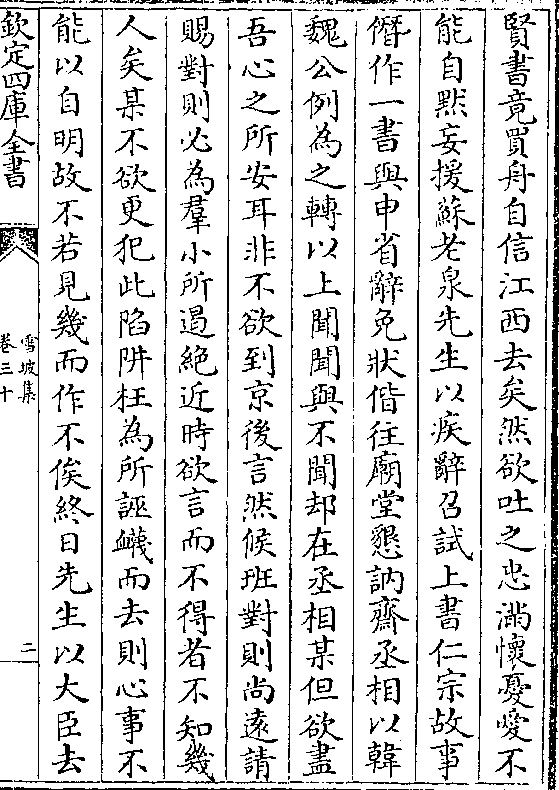 賢書竟買舟自信江西去矣然欲吐之忠滿懷憂愛不
能自黙妄援蘇老泉先生以疾辭召試上書仁宗故事
僭作一書與申省辭免狀偕往廟堂懇訥齋丞相以韓
魏公例為之轉以上聞聞與不聞却在丞相某但欲盡
吾心之所安耳非不欲到京後言然候班對則尚遠請
賜對則必為羣小所遏絶近時欲言而不得者不知幾
人矣某不欲更犯此陷阱枉為所誣衊而去則心事不
能以自明故不若見幾而作不俟終日先生以大臣去
欽定四庫全書
雪坡集
卷三十
二